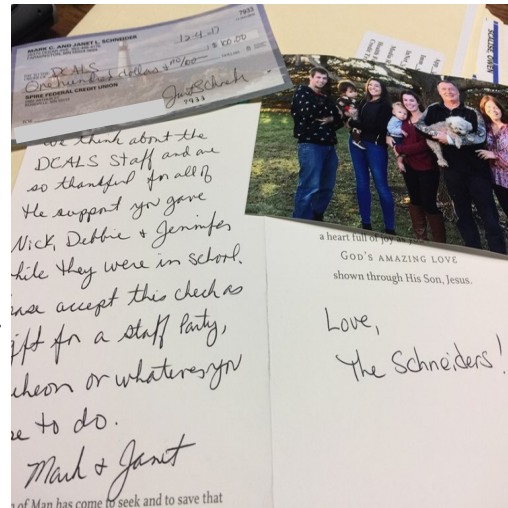 7933
MARK C. AND JANET L. SCHNEIDER
12-4-20
DCALS $ 100.00
One hundred dollars & no/00
SPIRE FEDERAL CREDIT UNION
7933
We think about the
DCALS Staff and are
so thankful for all of
the support you gave
Nick, Debbie & Jennifer
hile they were in school.
ase accept this check as
ift for a staff Party,
cheon or whatever you
se to do.
Mark & Janet
of Man has come to seek and to save that
a heart full of joy as you
GOD'S AMAZING LOVE
shown through His Son, Jesus.
Love,
The Schneiders!